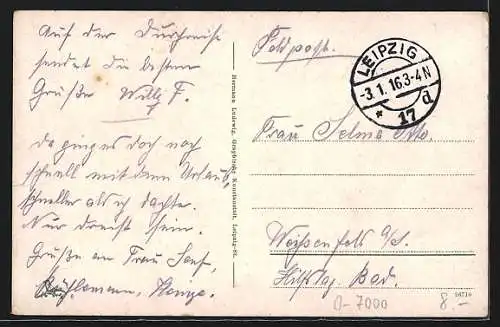 Auf der Durchreise
sendet die besten
Grüße Willy F.
da ging es doch noch
schnell mit dem Urlaub
schneller als ich dachte.
Nur dreist sein.
Grüße an Frau
Herman Ludwig, Graphische Kunstanstalt, Leipzig-R.
Feldpost.
LEIPZIG
-3.1.16.3-4N
* 17 d
Frau Selma
Weißenfels a/S.
Bad.
D-7000
8.-